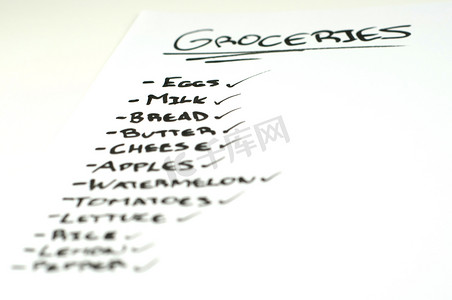 GROCERIES
- EGGS ✓
- MILK ✓
- BREAD ✓
- BUTTER ✓
- CHEESE ✓
- APPLES ✓
- WATERMELON ✓
- TOMATOES ✓
- LETTUCE ✓
- RICE ✓
- LEMON ✓
- PEPPER ✓
千库网
588ku.com